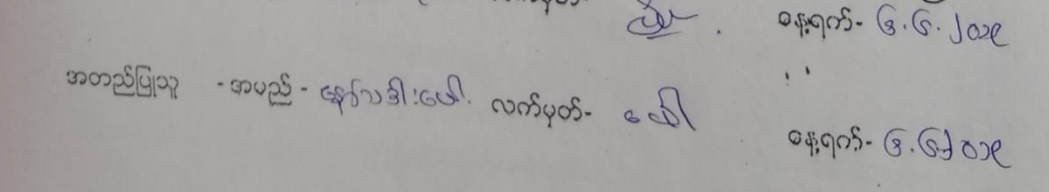 နေ့ရက်- ၆.၆.၂၀၁၉
အတည်ပြုသူ - အမည် - နော်သဒါးဖေါ လက်မှတ်- ဖေါ
နေ့ရက်- ၆.၆.၂၀၁၉